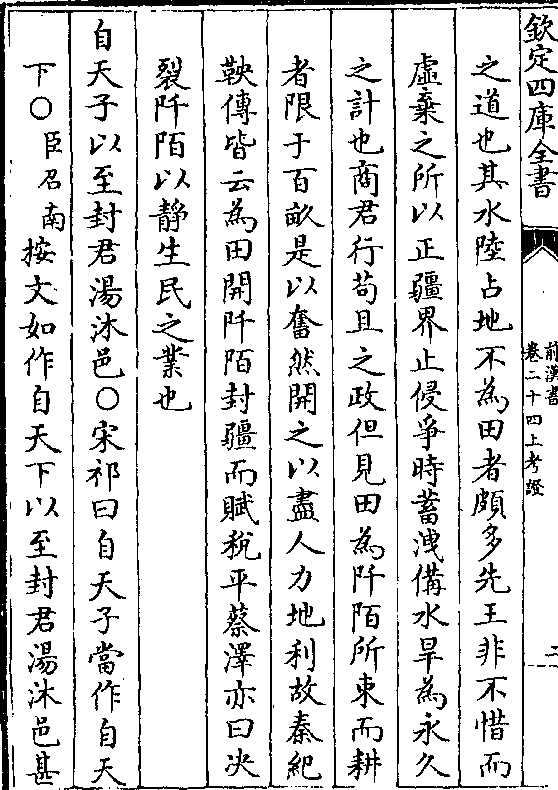 欽定四庫全書
前漢書
卷二十四上考證
二
之道也其水陸占地不為田者頗多先王非不惜而
虛棄之所以正疆界止侵爭時蓄洩備水旱為永久
之計也商君行苟且之政但見田為阡陌所束而耕
者限于百畝是以奮然開之以盡人力地利故秦紀
鞅傳皆云為田開阡陌封疆而賦稅平蔡澤亦曰決
裂阡陌以靜生民之業也
自天子以至封君湯沐邑○宋祁曰自天子當作自天
下○臣召南按文如作自天下以至封君湯沐邑甚